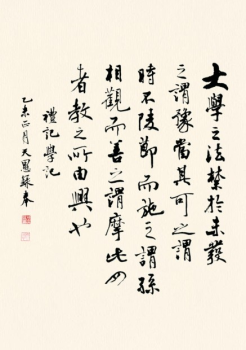 大學之法禁於未發
之謂豫當其可之謂
時不陵節而施之謂孫
相觀而善之謂摩此四
者教之所由興也
禮記學記
乙未正月天恩錄奉